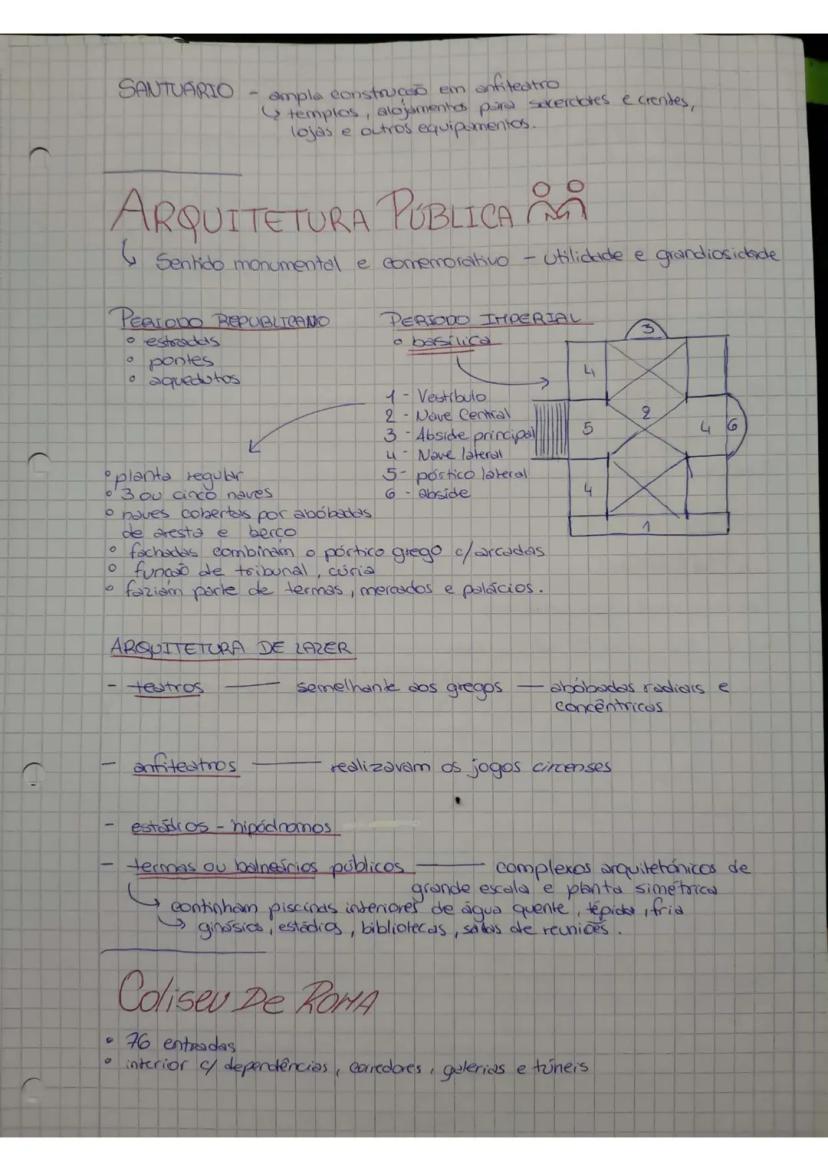 SANTUÁRIO - ampla construção em anfiteatro
↳ templos, alojamentos para sacerdotes e crentes,
lojas e outros equipamentos.
ARQUITETURA PÚBLICA
↳ Sentido monumental e comemorativo - utilidade e grandiosidade
PERÍODO REPUBLICANO
• estradas
• pontes
• aquedutos
PERÍODO IMPERIAL
• basílica
1 - Vestíbulo
2 - Nave Central
3 - Abside principal
4 - Nave lateral
5 - pórtico lateral
6 - abside
3
4
2
5
4
6
4
1
• planta regular
• 3 ou cinco naves
• naves cobertas por abóbadas
de aresta e berço
• fachadas combinam o pórtico grego c/arcadas
• função de tribunal, cúria
• faziam parte de termas, mercados e palácios.
ARQUITETURA DE LAZER
- teatros — semelhante aos gregos — abóbadas radiais e
concêntricas
- anfiteatros — realizavam os jogos circenses
- estádios - hipódromos
- termas ou balneários públicos — complexos arquitetónicos de
grande escala e planta simétrica
↳ continham piscinas interiores de água quente, tépida, fria
↳ ginásios, estádios, bibliotecas, salas de reuniões.
Coliseu De ROMA
• 76 entradas
• interior c/ dependências, corredores, galerias e túneis